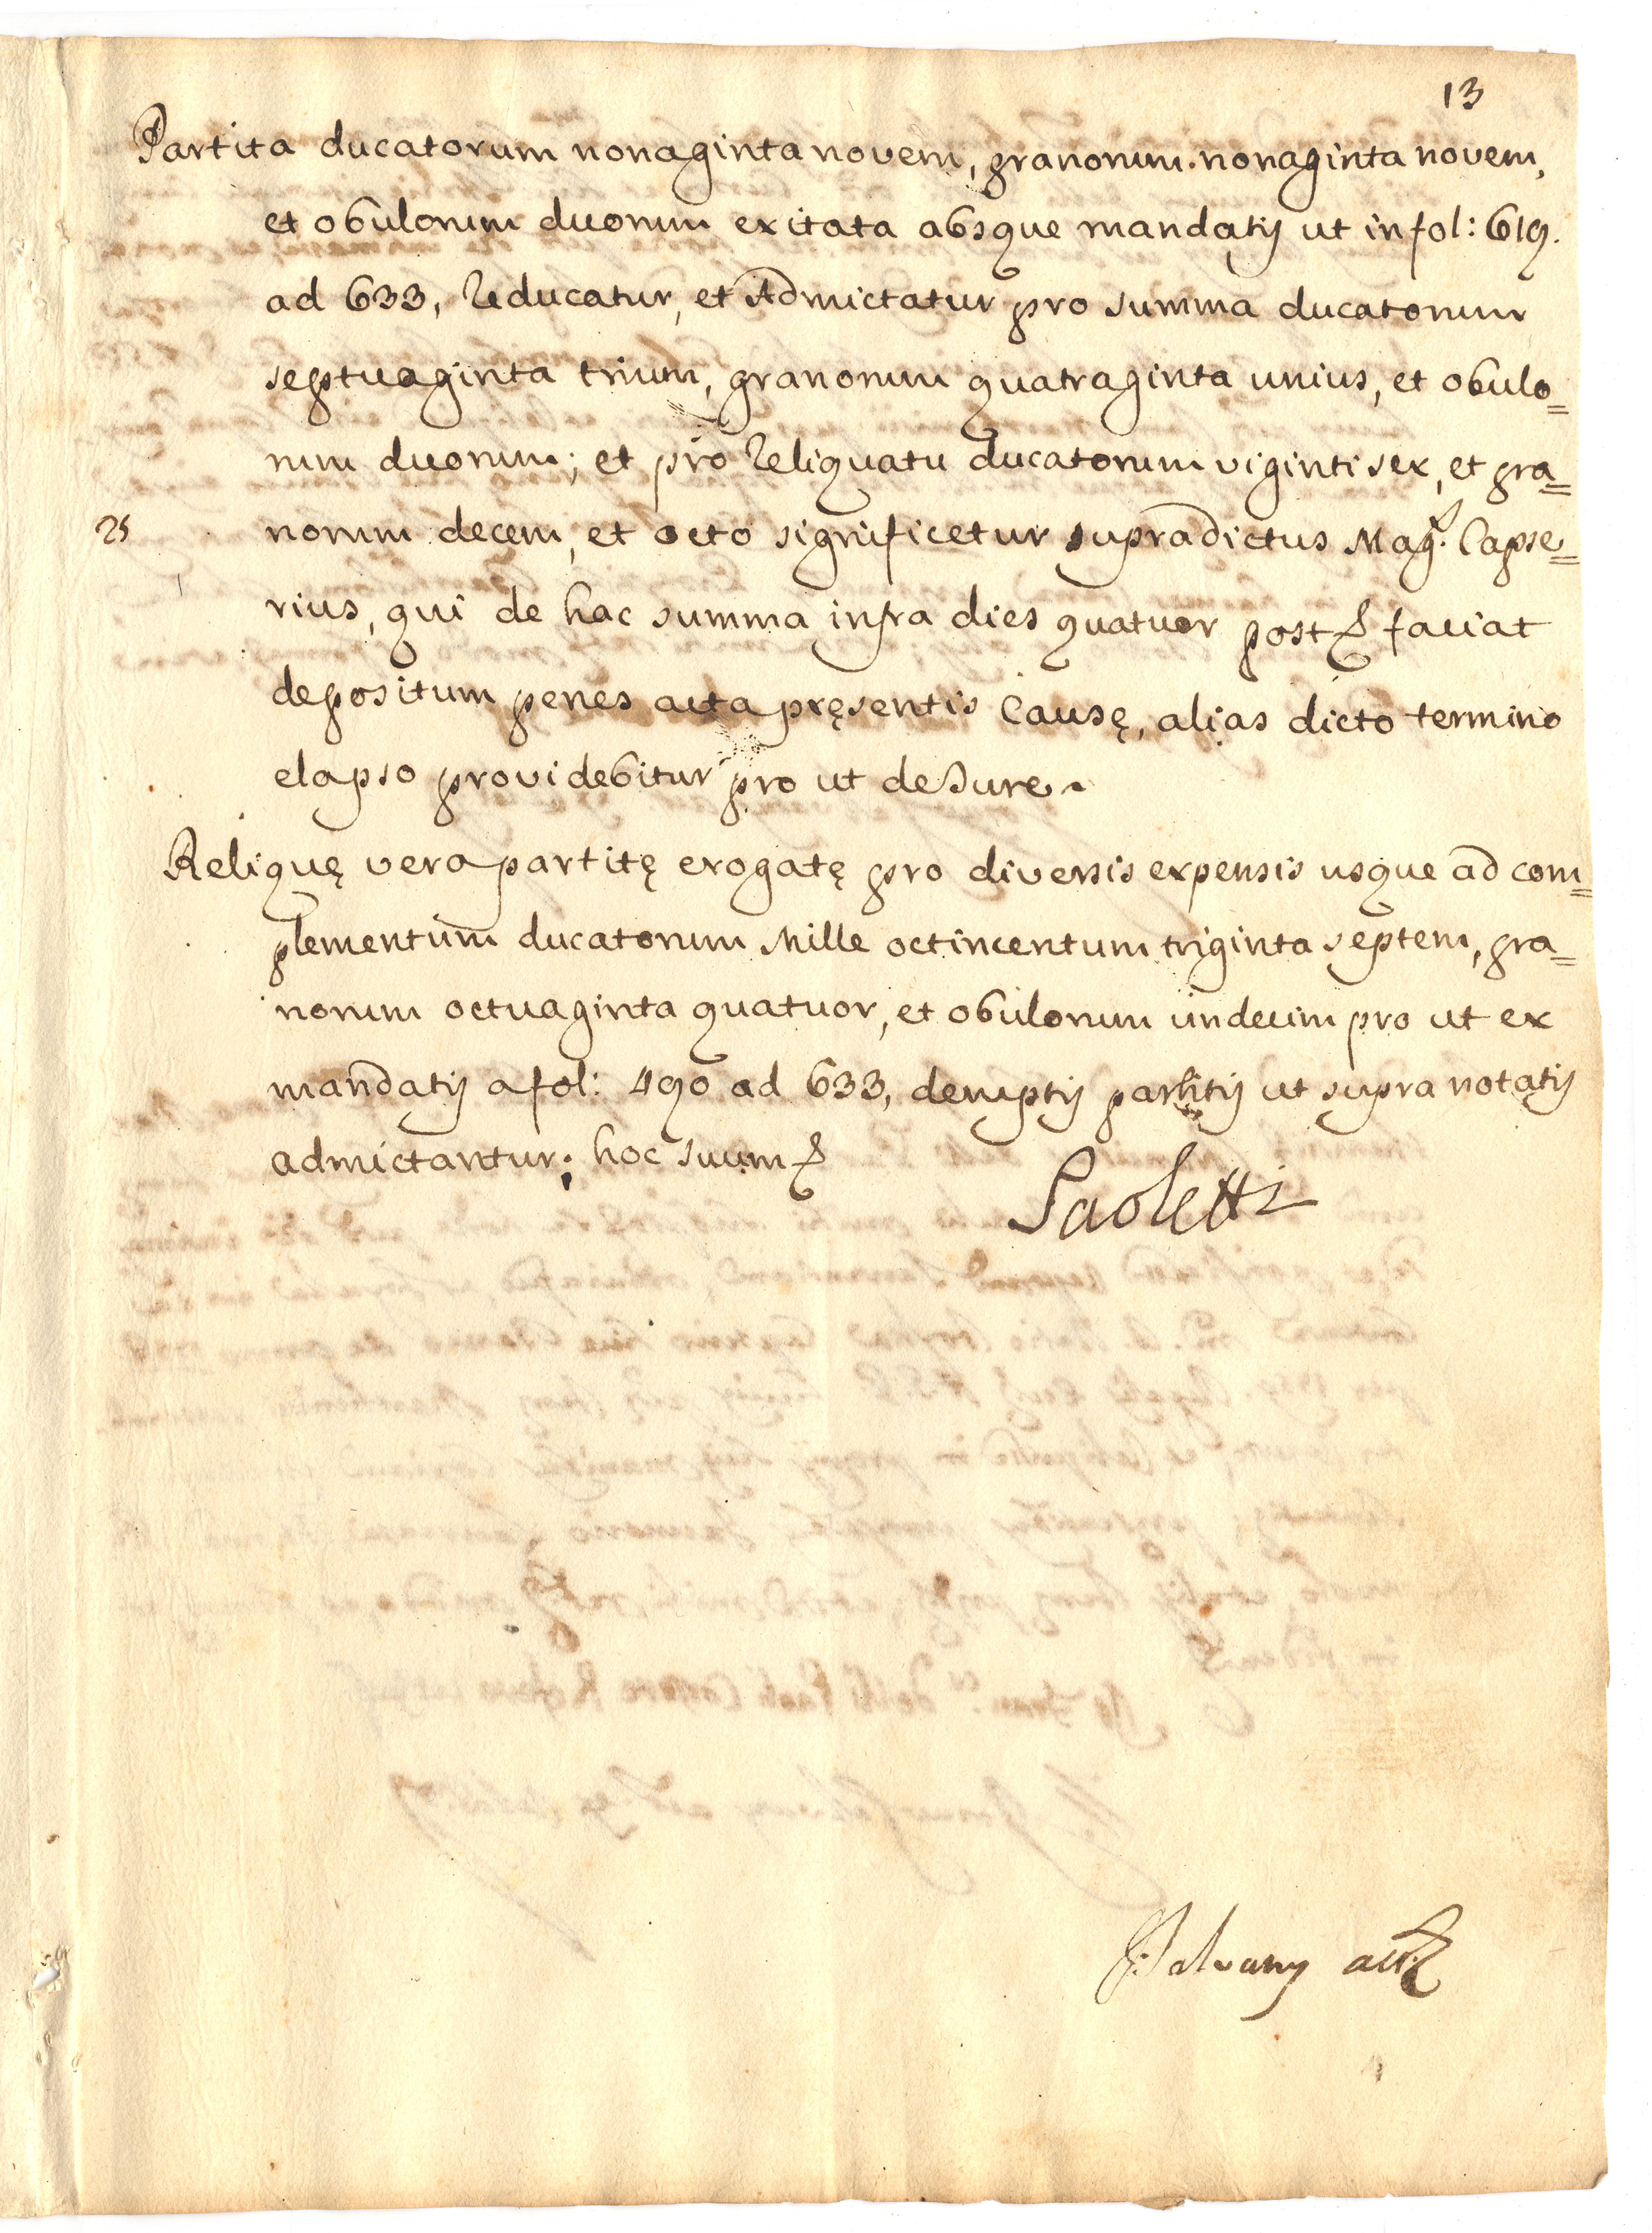 13
Partita ducatorum nonaginta novem, granorum nonaginta novem,
et obulorum duorum exitata absque mandatij ut in fol: 619.
ad 633, Reducatur, et Admictatur pro summa ducatorum
septuaginta trium, granorum quatraginta unius, et obulo=
rum duorum; et pro Reliquatu ducatorum viginti sex, et gra=
25 norum decem, et octo significetur supradictus Mag.r Capse=
rius, qui de hac summa infra dies quatuor post faciat
depositum penes acta pręsentis Causę, alias dicto termino
elapso providebitur pro ut de Jure.
Reliquę vera partitę erogatę pro diversis expensis usque ad com=
plementum ducatorum Mille octincentum triginta septem, gra=
norum octuaginta quatuor, et obulorum undecim pro ut ex
mandatij a fol: 490 ad 633, demptij partitij ut supra notatij
admictantur; hoc suum
Paoletti